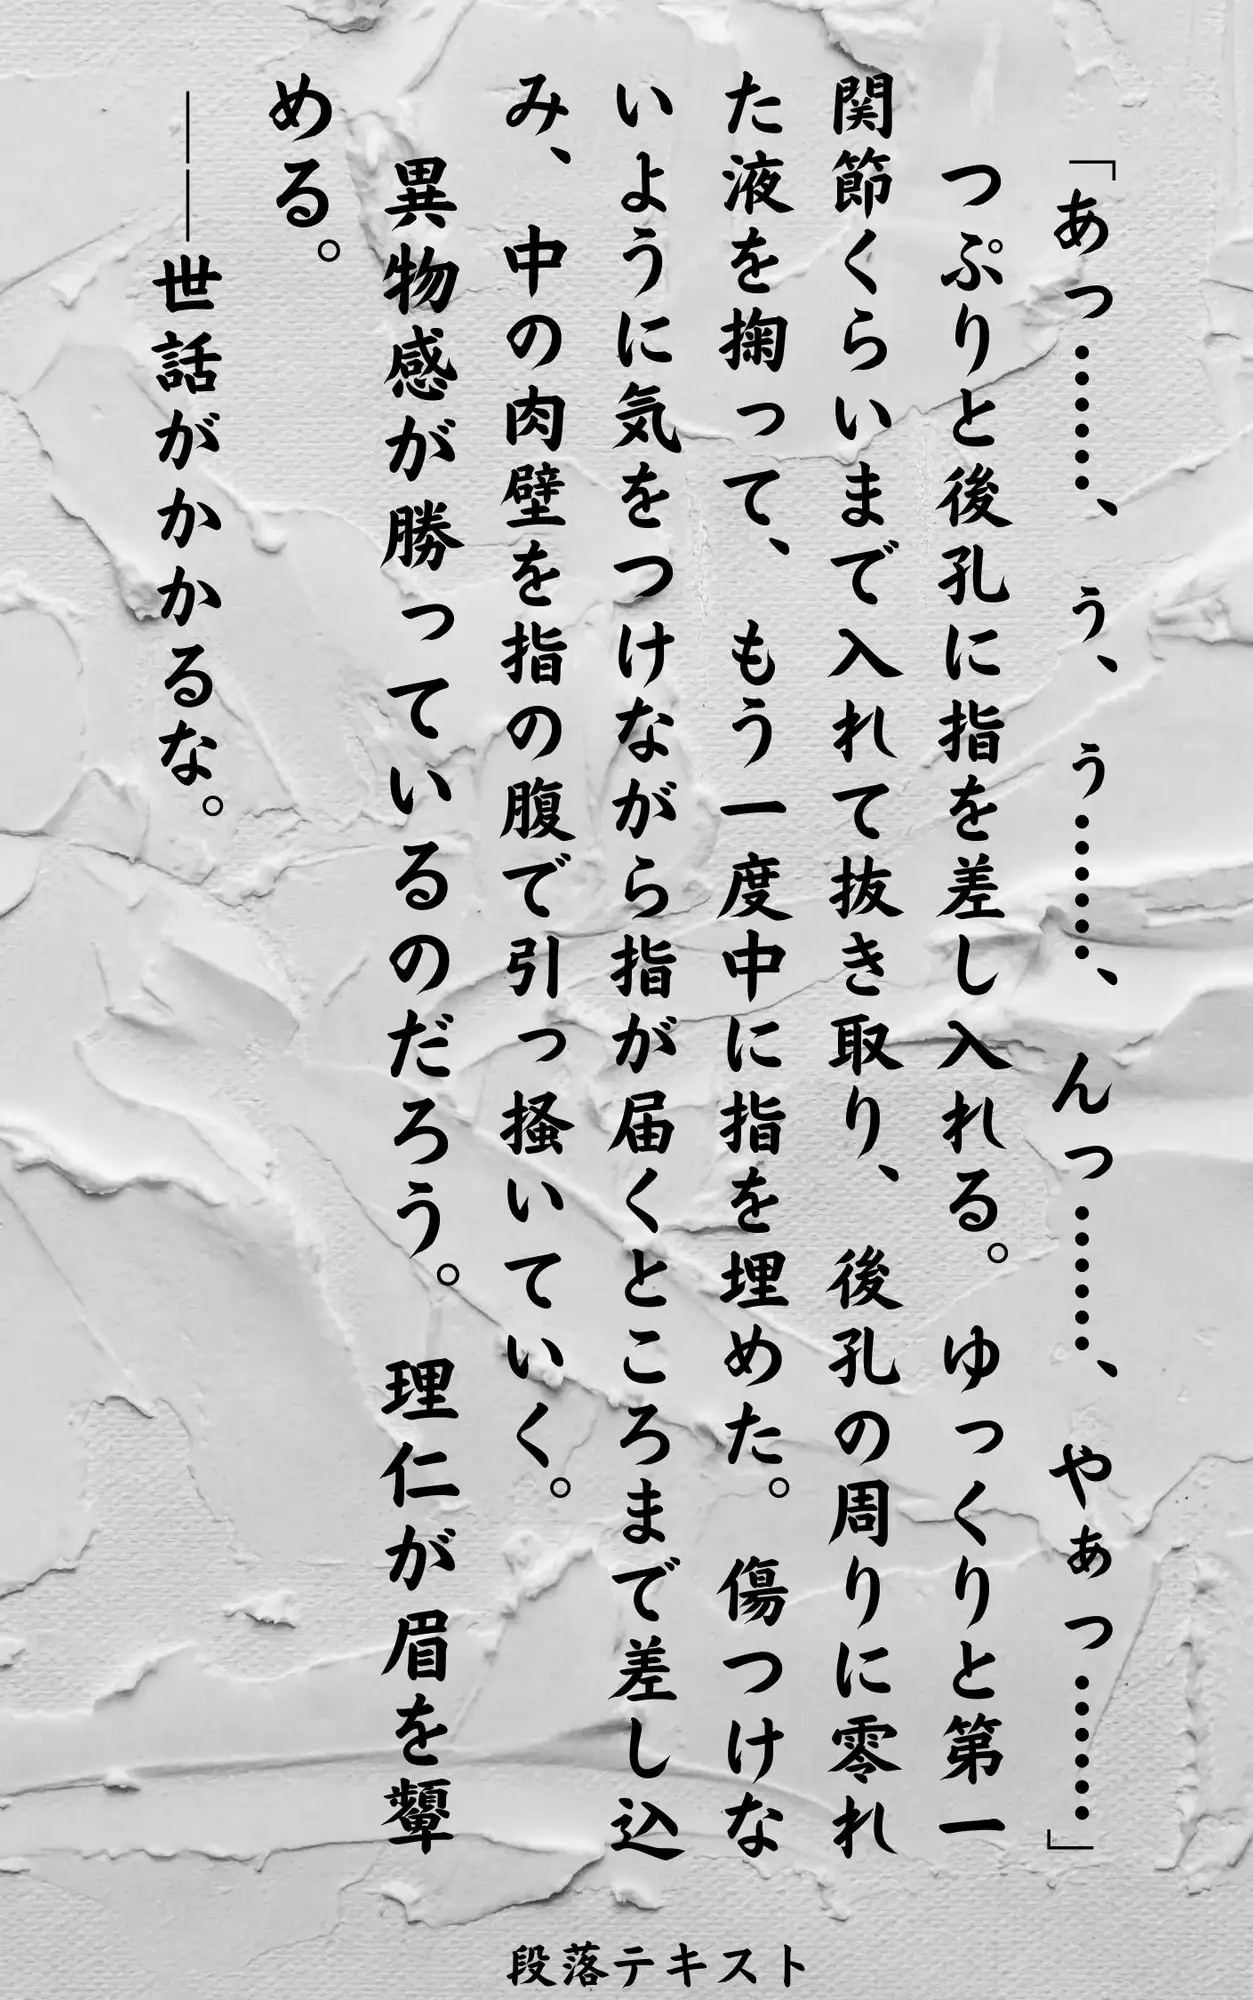 「あっ………、う、う………、んっ………、やぁっ………」
つぷりと後孔に指を差し入れる。ゆっくりと第一
関節くらいまで入れて抜き取り、後孔の周りに零れ
た液を掬って、もう一度中に指を埋めた。傷つけな
いように気をつけながら指が届くところまで差し込
み、中の肉壁を指の腹で引っ掻いていく。
異物感が勝っているのだろう。理仁が眉を顰
める。
――世話がかかるな。
段落テキスト